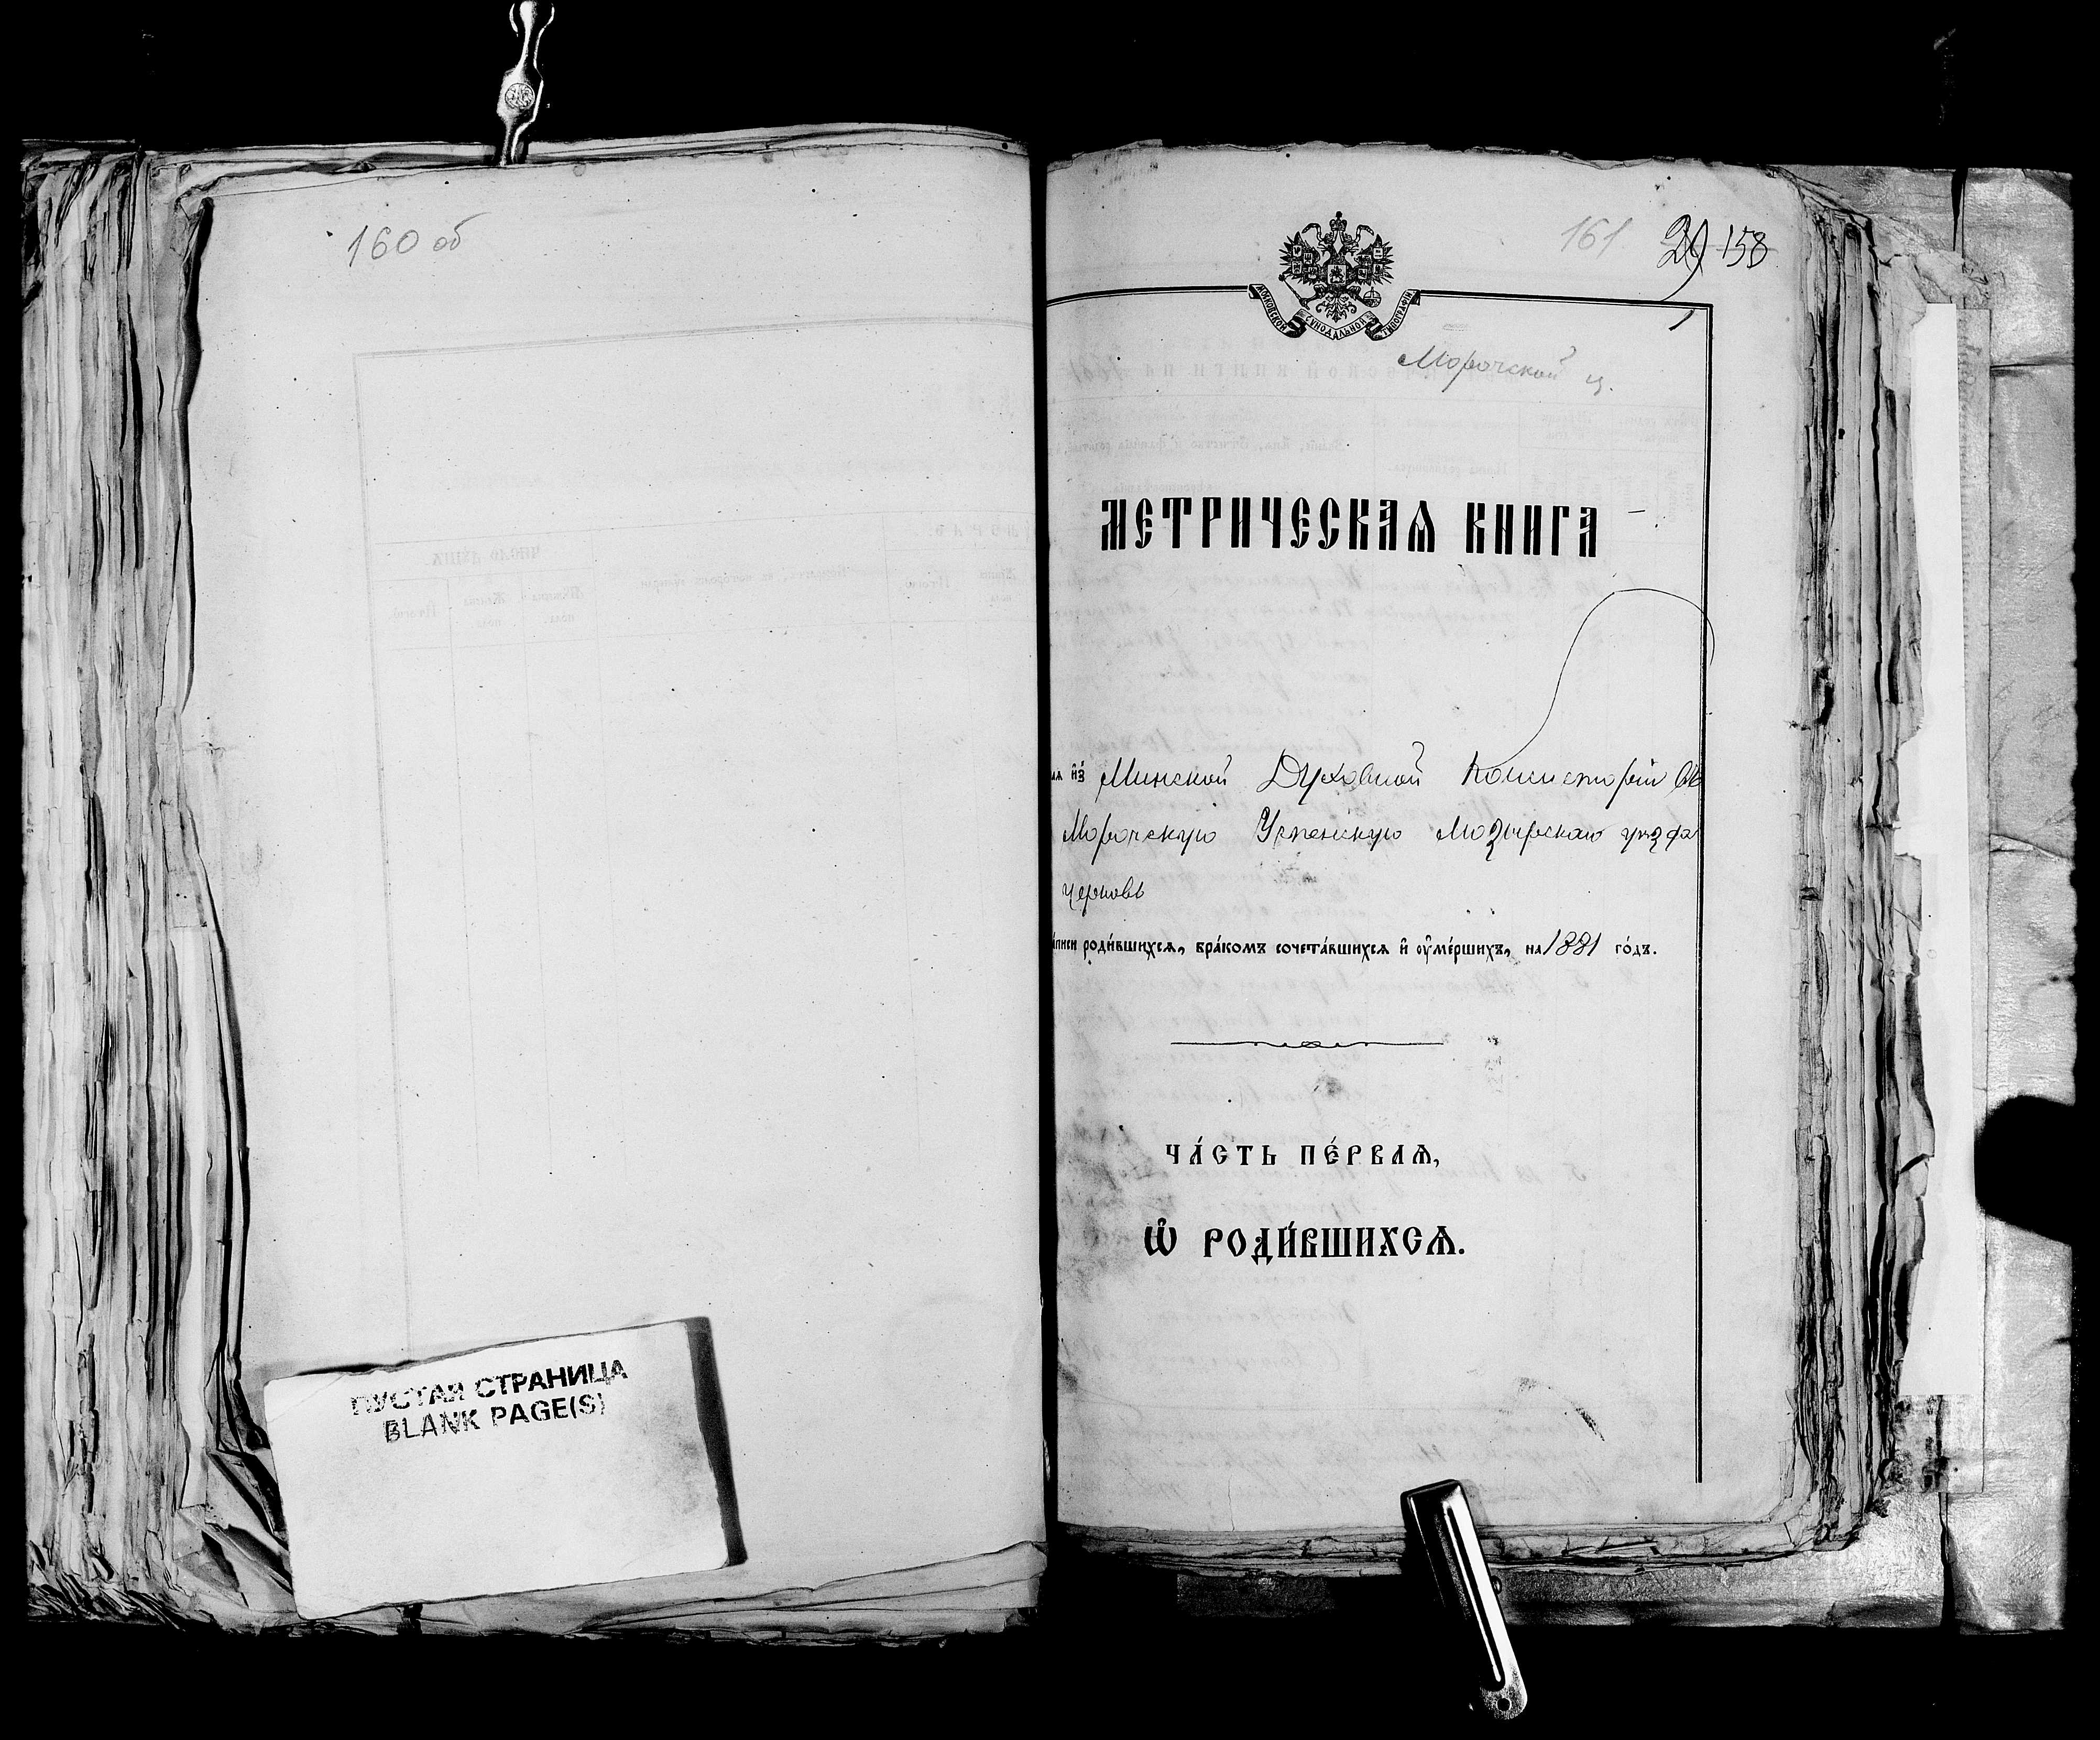 160 об
ПУСТАЯ СТРАНИЦА
BLANK PAGE(S)
161 29 158
МОСКОВСКОЙ СѴНОДАЛЬНОЙ ТИПОГРАФІИ
1
Морочской ц.
МЕТРИЧЕСКАѦ КНИГА
из̾ Минской Духовной Консисторіи въ
Морочскую Успенскую Мозырскаго уѣзда
церковь
роди́вшихсѧ, бра́комъ сочета́вшихсѧ и҆ ᲂу҆ме́ршихъ, на 1881 го́дъ.
ЧА́СТЬ ПЕ́РВАѦ,
Ѡ҆ РОДИ́ВШИХСѦ.